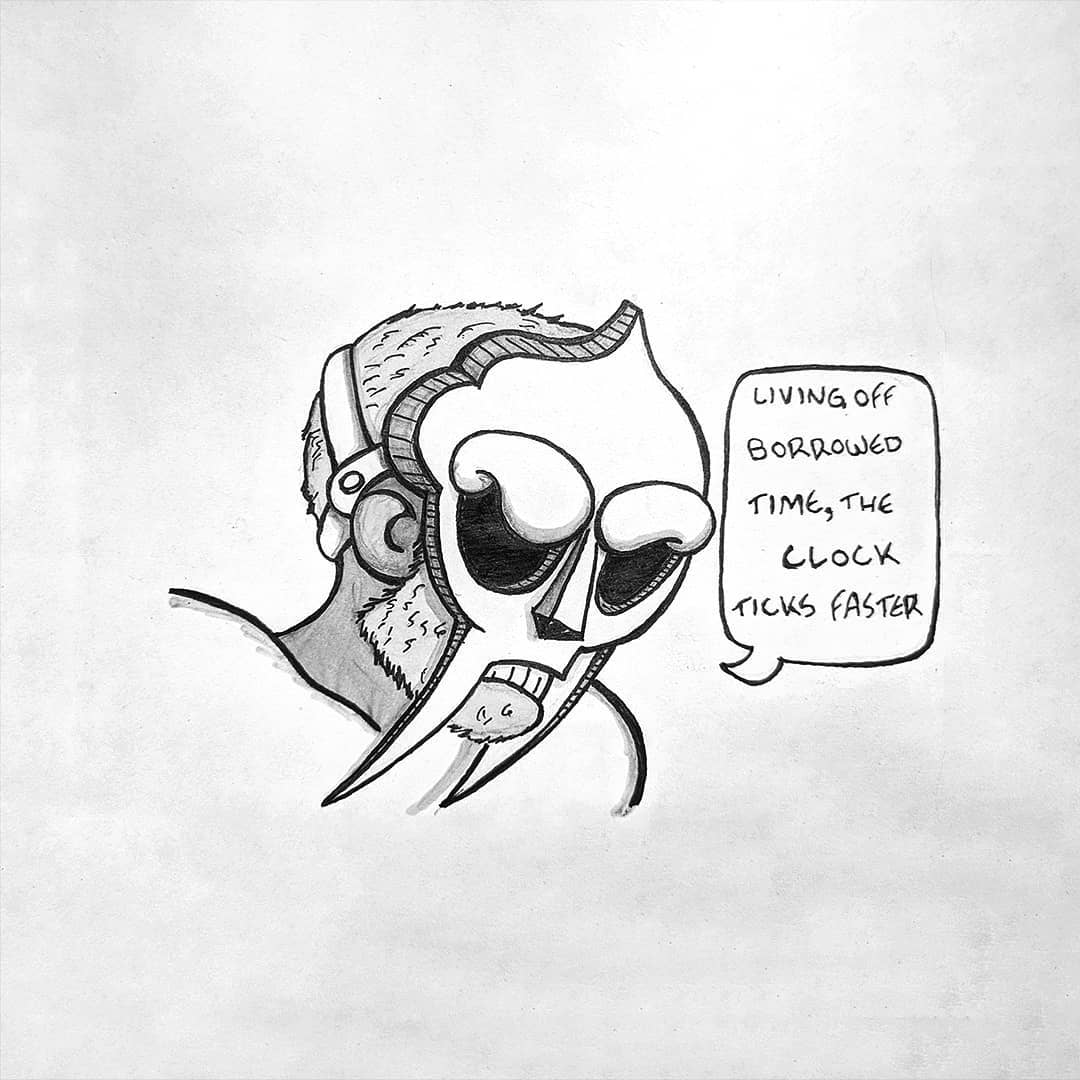 LIVING OFF
BORROWED
TIME, THE
CLOCK
TICKS FASTER